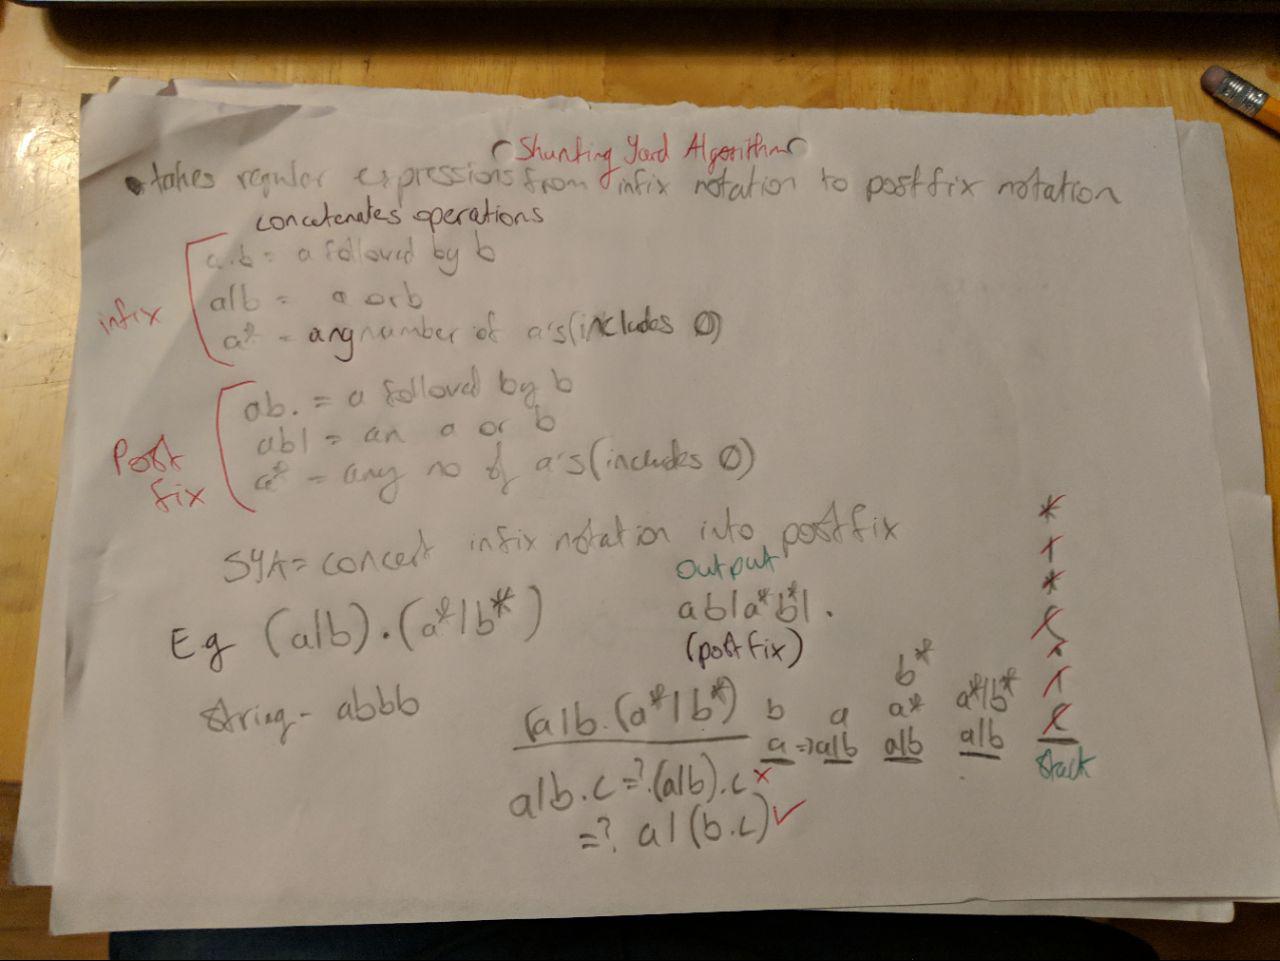 Shunting Yard Algorithm
takes regular expressions from infix notation to postfix notation
concatenates operations
infix
a.b = a followed by b
a|b = a or b
a* = any number of a's (includes 0)
Post fix
ab. = a followed by b
ab| = an a or b
a* = any no of a's (includes 0)
SYA = concert infix notation into postfix
output
Eg (a|b).(a*|b*)
ab|a*b*|.
(postfix)
string - abbb
(a|b.(a*|b*)
b
a => a|b
a
b*
a*
a|b
a*|b*
a|b
*
|
*
(
.
|
(
stack
a|b.c =? (a|b).c x
=? a|(b.c) ✓